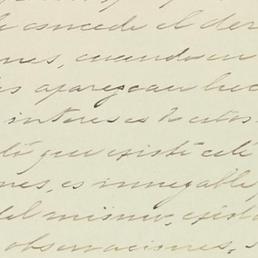 concede el der
nes, cuando en
aparezcan hec
intereses de estos
que existi
nes, es innegable,
del mismo, existi
observaciones, s